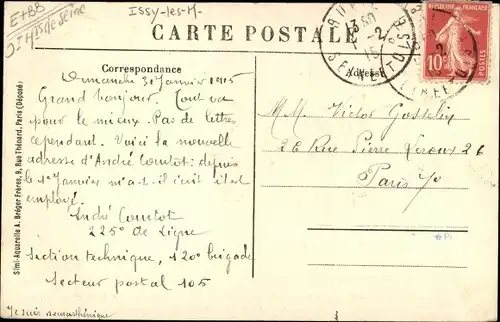 E+BB
Issy-les-M-
Hts de Seine
CARTE POSTALE
Correspondance
Adresse
RÉPUBLIQUE FRANÇAISE
10c
POSTES
Dimanche 31 Janvier 1915
Grand bonjour. Tout va
pour le mieux. Pas de lettres
cependant. Voici la nouvelle
adresse d'André Courtot: depuis
le 1er Janvier m'a-t-il écrit il est
employé.
André Courtot
225e de Ligne
Section technique, 120e brigade
Secteur postal 105
Je suis
M.M. Victor Gosselin
26 Rue Pierre Leroux 26
Paris
Simi-Aquarelle A. Breger Frères, 9, Rue Thénard, Paris (Déposé)